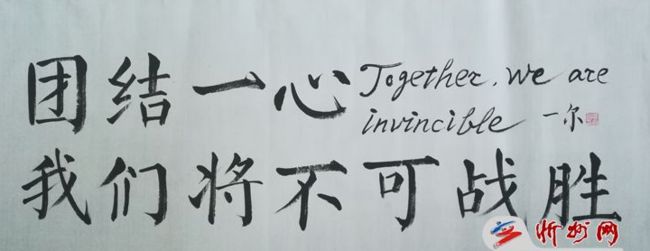 团结一心
Together, we are
invincible 一尔
我们将不可战胜
忻州网